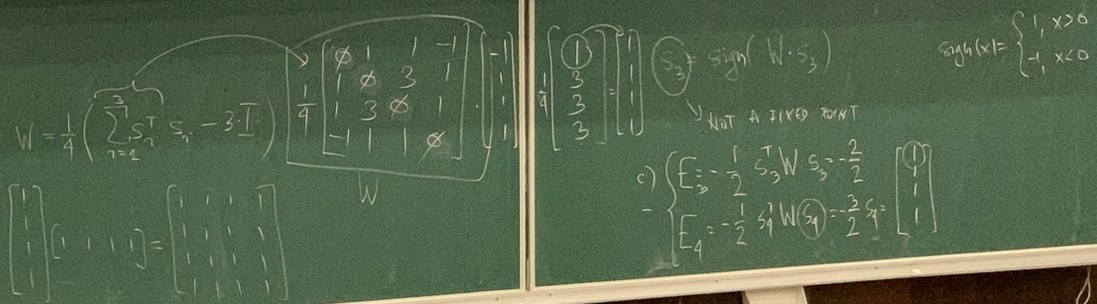 W = 1/4 ( Σ_{n=1}^{3} S_n^T S_n - 3·I ) 1/4 [ ∅ 1 1 -1 ; 1 ∅ 3 1 ; 1 3 ∅ 1 ; -1 1 1 ∅ ] · [ -1 ; 1 ; 1 ; 1 ]
W
[ 1 ; 1 ; 1 ; 1 ] [ 1 1 1 1 ] = [ 1 1 1 1 ; 1 1 1 1 ; 1 1 1 1 ; 1 1 1 1 ]
1/4 [ 1 ; 3 ; 3 ; 3 ] = [ 1 ; 1 ; 1 ; 1 ]
S_3 = sign( W · S_3 )
NOT A FIXED POINT
sign(x) = { 1, x>0 ; -1, x<0
c) { E_3 = -1/2 S_3^T W S_3 = -2/2
E_4 = -1/2 S_4^T W S_4 = -3/2 S_4 = [ 1 ; 1 ; 1 ; 1 ]